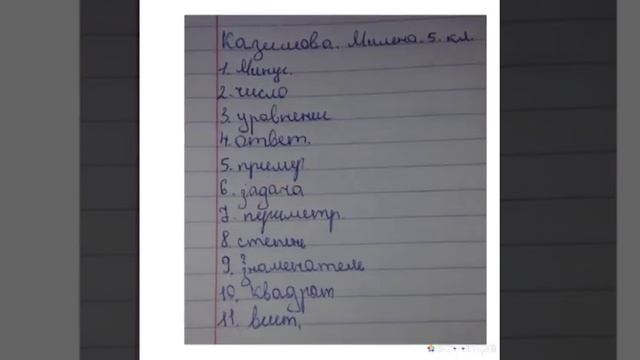 Казимова. Милена. 5. кл
1. Минус.
2. число
3. уравнение
4. ответ.
5. пример
6. задача
7. периметр.
8. степень
9. знаменатель
10. квадрат
11.